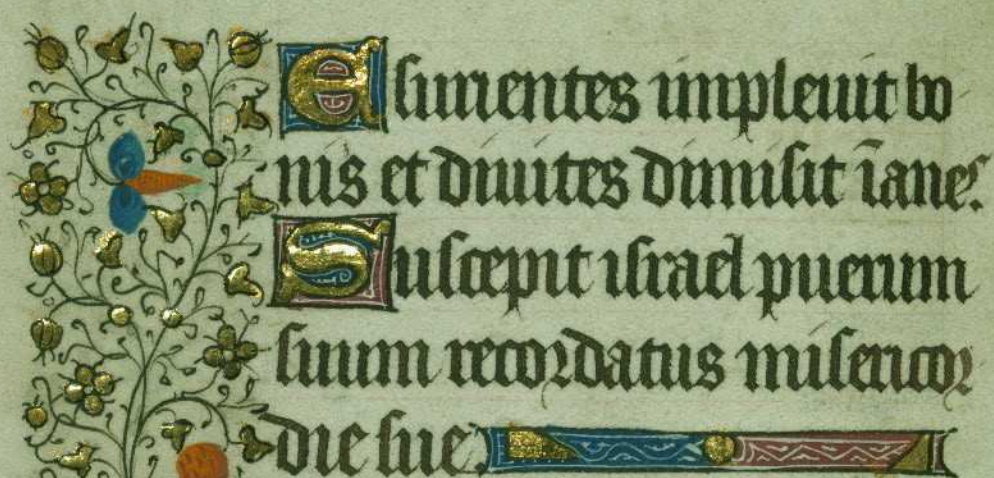 Esurientes impleuit bo
nis et diuites dimisit īanes.
Suscepit israel puerum
suum recordatus misericor
die sue.